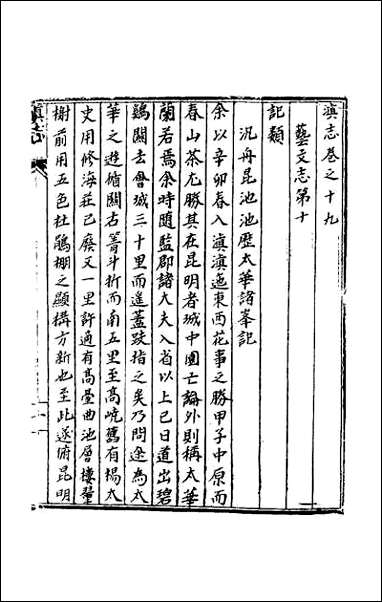 滇志卷之十九
藝文志第十
記類
汎舟昆池歷太華諸峯記
余以辛卯春入滇滇迤東西花事之勝甲子中原而
春山茶尤勝其在昆明者城中園亡論外則稱太華
蘭若焉余時隨監郡諸大夫入省以上巳日道出碧
鷄關去會城三十里而遙蓋跂指之矣乃問途為太
華之遊循關右箐斗折而南五里至高嶢舊有楊太
史用修海莊已廢又一里許過有高臺曲池層樓翬
榭前用五色杜鵑棚之顯構方新也至此遂俯昆明
滇志